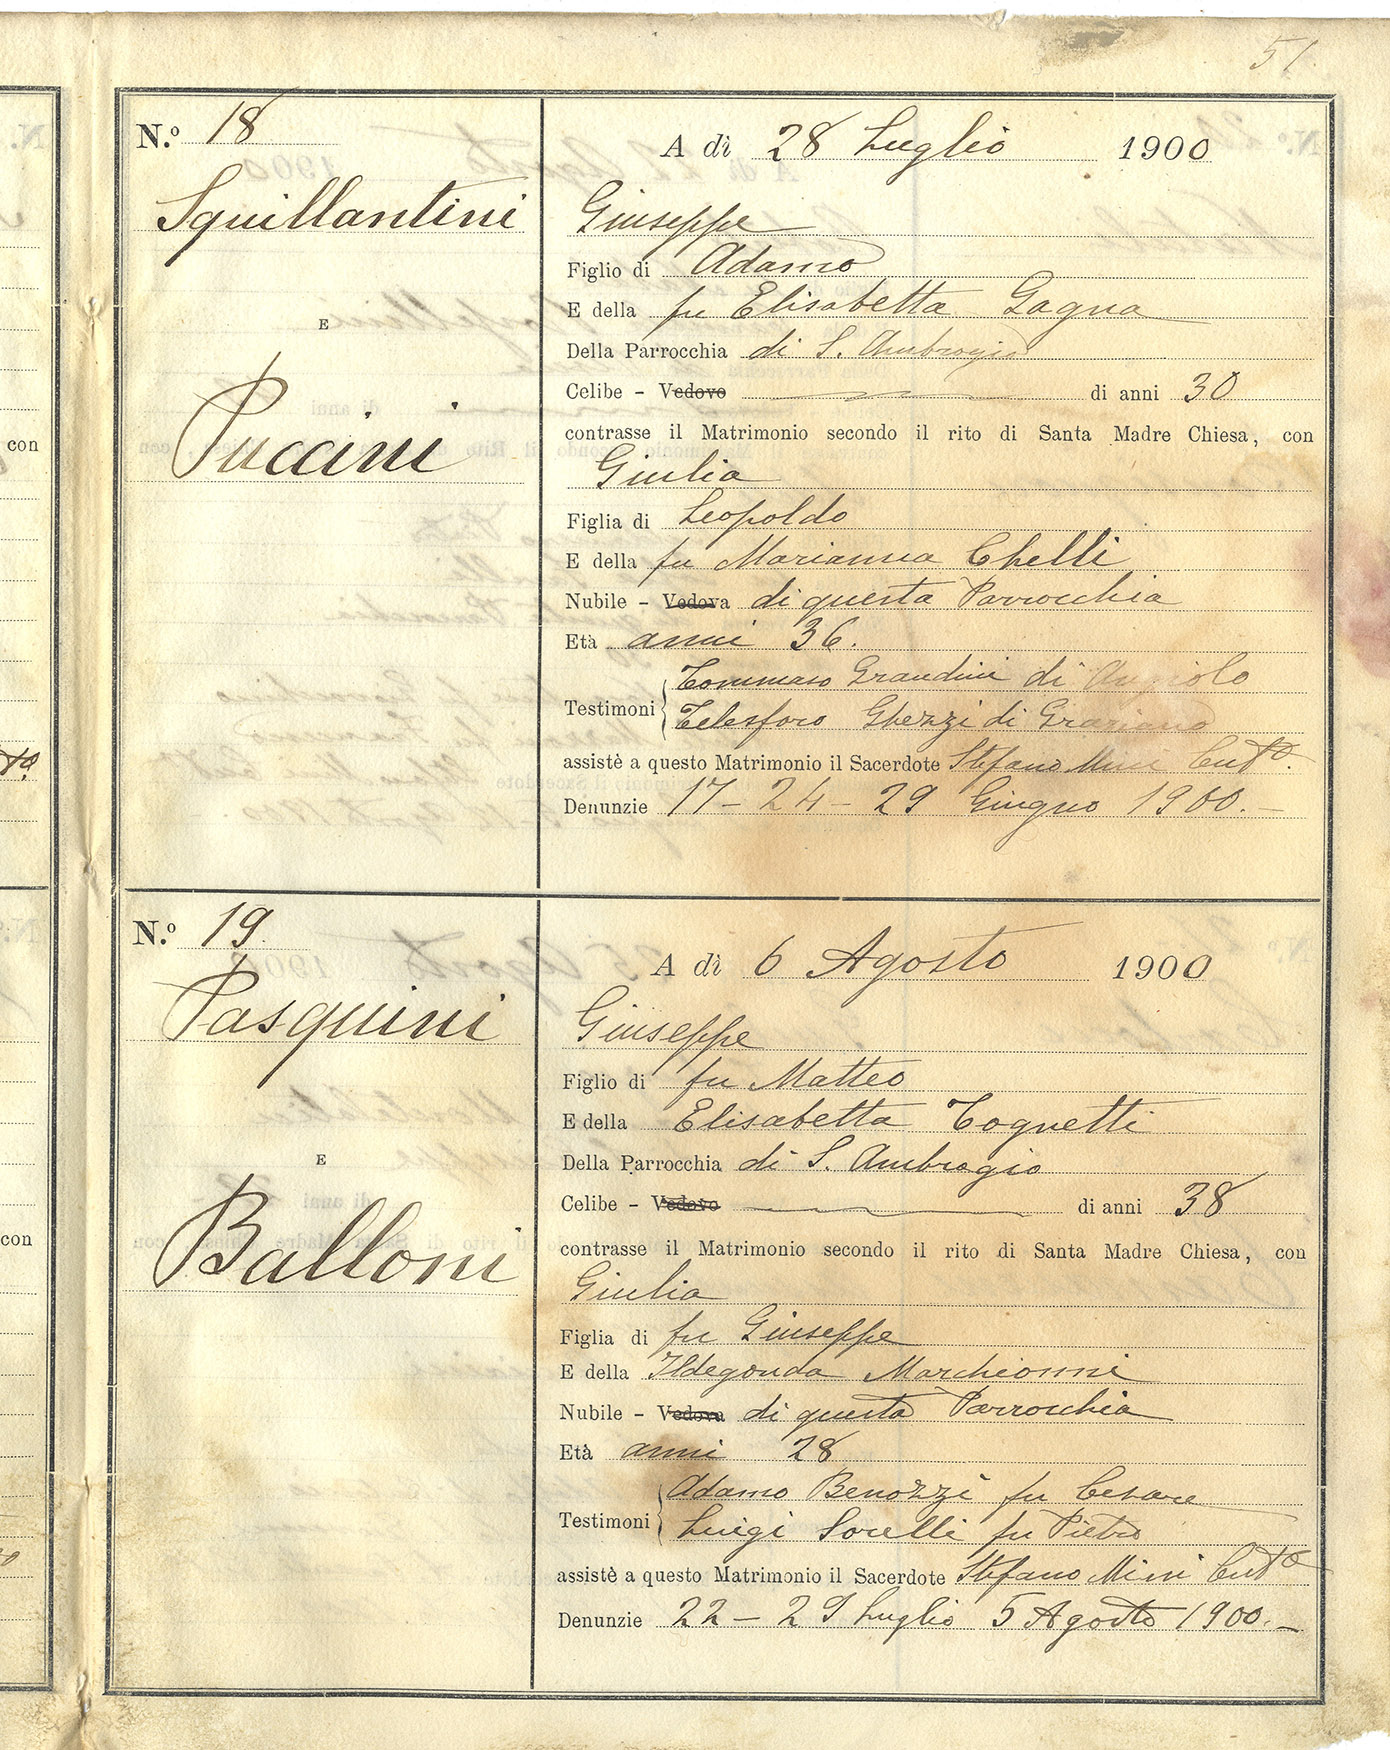 51.
N.º 18
Squillantini
E
Puccini
A dì 28 Luglio 1900
Giuseppe
Figlio di Adamo
E della fu Elisabetta Gagna
Della Parrocchia di S. Ambrogio
Celibe - Vedovo di anni 30
contrasse il Matrimonio secondo il rito di Santa Madre Chiesa, con
Giulia
Figlia di Leopoldo
E della fu Marianna Chelli
Nubile - Vedova di questa Parrocchia
Età anni 36.
Tommaso Grandini di Angiolo
Testimoni
Telesforo Ghezzi di Graziano
assistè a questo Matrimonio il Sacerdote Stefano Mini Cur.to
Denunzie 17 - 24 - 29 Giugno 1900. -
N.º 19.
Pasquini
E
Balloni
A dì 6 Agosto 1900
Giuseppe
Figlio di fu Matteo
E della Elisabetta Tognetti
Della Parrocchia di S. Ambrogio
Celibe - Vedovo di anni 38
contrasse il Matrimonio secondo il rito di Santa Madre Chiesa, con
Giulia
Figlia di fu Giuseppe
E della Ildegonda Marchionni
Nubile - Vedova di questa Parrocchia
Età anni 28
Adamo Benozzi fu Cesare
Testimoni
Luigi Sorelli fu Pietro
assistè a questo Matrimonio il Sacerdote Stefano Mini
Denunzie 22 - 29 Luglio 5 Agosto 1900. -
con
con